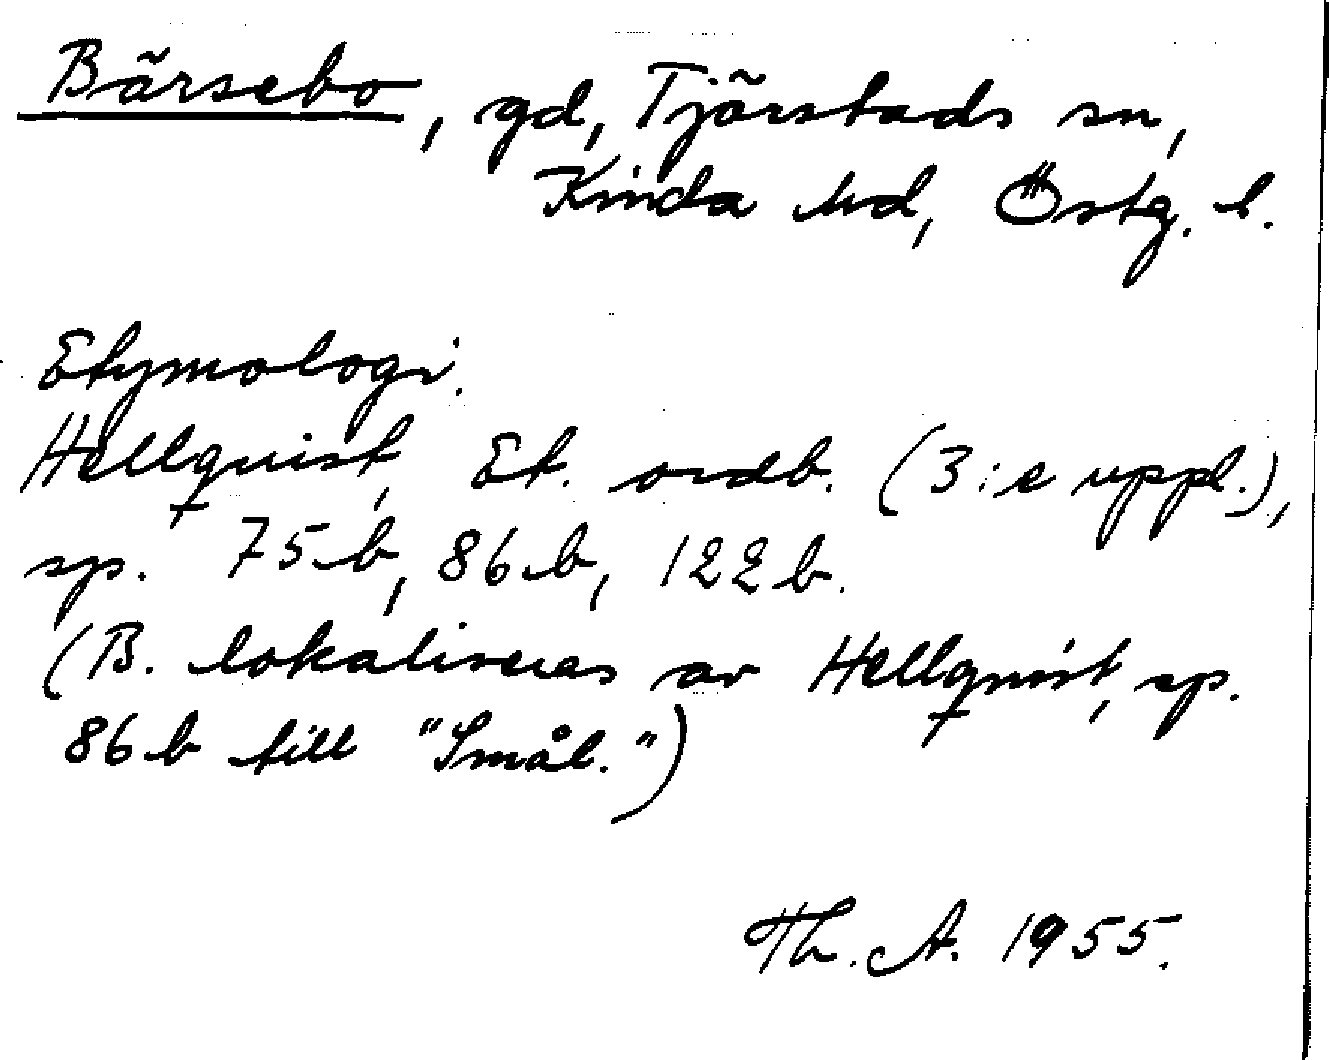 Bärsebo, gd, Tjärstads sn,
Kinda hd, Östg. l.
Etymologi.
Hellquist, Et. ordb. (3:e uppl.),
sp. 75 b, 86 b, 122 b.
(B. lokaliseras av Hellquist, sp.
86 b till "Smål.")
Th. A. 1955.